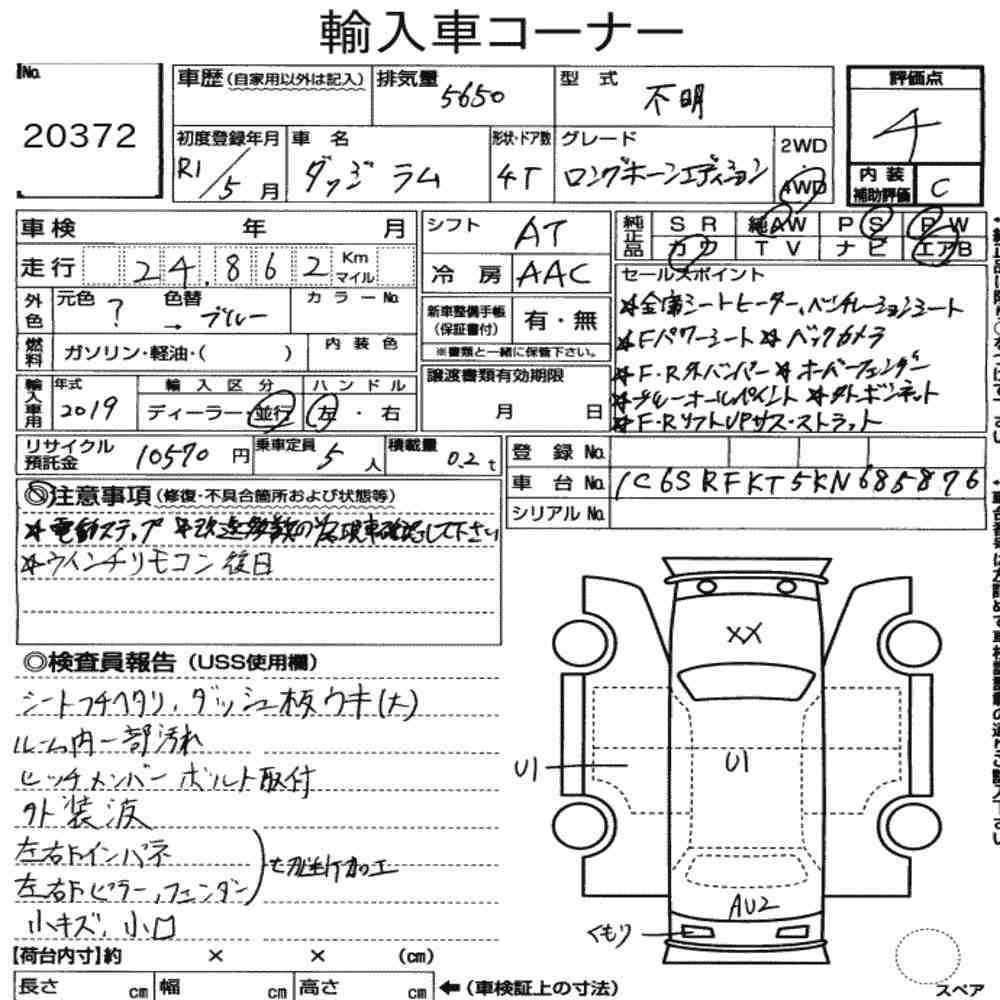 輸入車コーナー
No.
20372
車歴(自家用以外は記入)
排気量
5650
型 式
不明
評価点
4
内装補助評価 C
初度登録年月
R1/5月
車 名
ダッジ ラム
形状・ドア数
4T
グレード
ロングホーンエディション
2WD
・
4WD
車検 年 月
走行 24,862 Km マイル
外色 元色 ? 色替 → ブルー カラーNo.
燃料 ガソリン・軽油・( ) 内装色
輸入車用 年式 2019 輸入区分 ディーラー・並行 ハンドル 左・右
リサイクル預託金 10570円 乗車定員 5人 積載量 0.2t
シフト AT
冷房 AAC
新車整備手帳(保証書付) 有・無
※書類と一緒に保管下さい。
譲渡書類有効期限
月 日
純正品 SR 純AW PS PW
カワ TV ナビ エアB
セールスポイント
☆全席シートヒーター、ベンチレーションシート
☆Fパワーシート ☆バックカメラ
☆F・R外バンパー ☆オーバーフェンダー
☆ブルーオールペイント ☆外ボンネット
☆F・RリフトUPサス・ストラット
登録No.
車台No. 1C6SRFKT5KN685876
シリアルNo.
◎注意事項(修復・不具合箇所および状態等)
☆電動ステップ ☆改造多数の為現車確認して下さい
☆ウインチリモコン後日
◎検査員報告(USS使用欄)
シートフチヘタリ、ダッシュ板ウキ(大)
ルーム内一部汚れ
ヒッチメンバーボルト取付
外装波
左右Fインパネ
左右Fピラー、フェンダー
小キズ、小凹
XX
U1
U1
AU2
くもり
スペア
【荷台内寸】約 × × (cm)
長さ cm 幅 cm 高さ cm ←(車検証上の寸法)